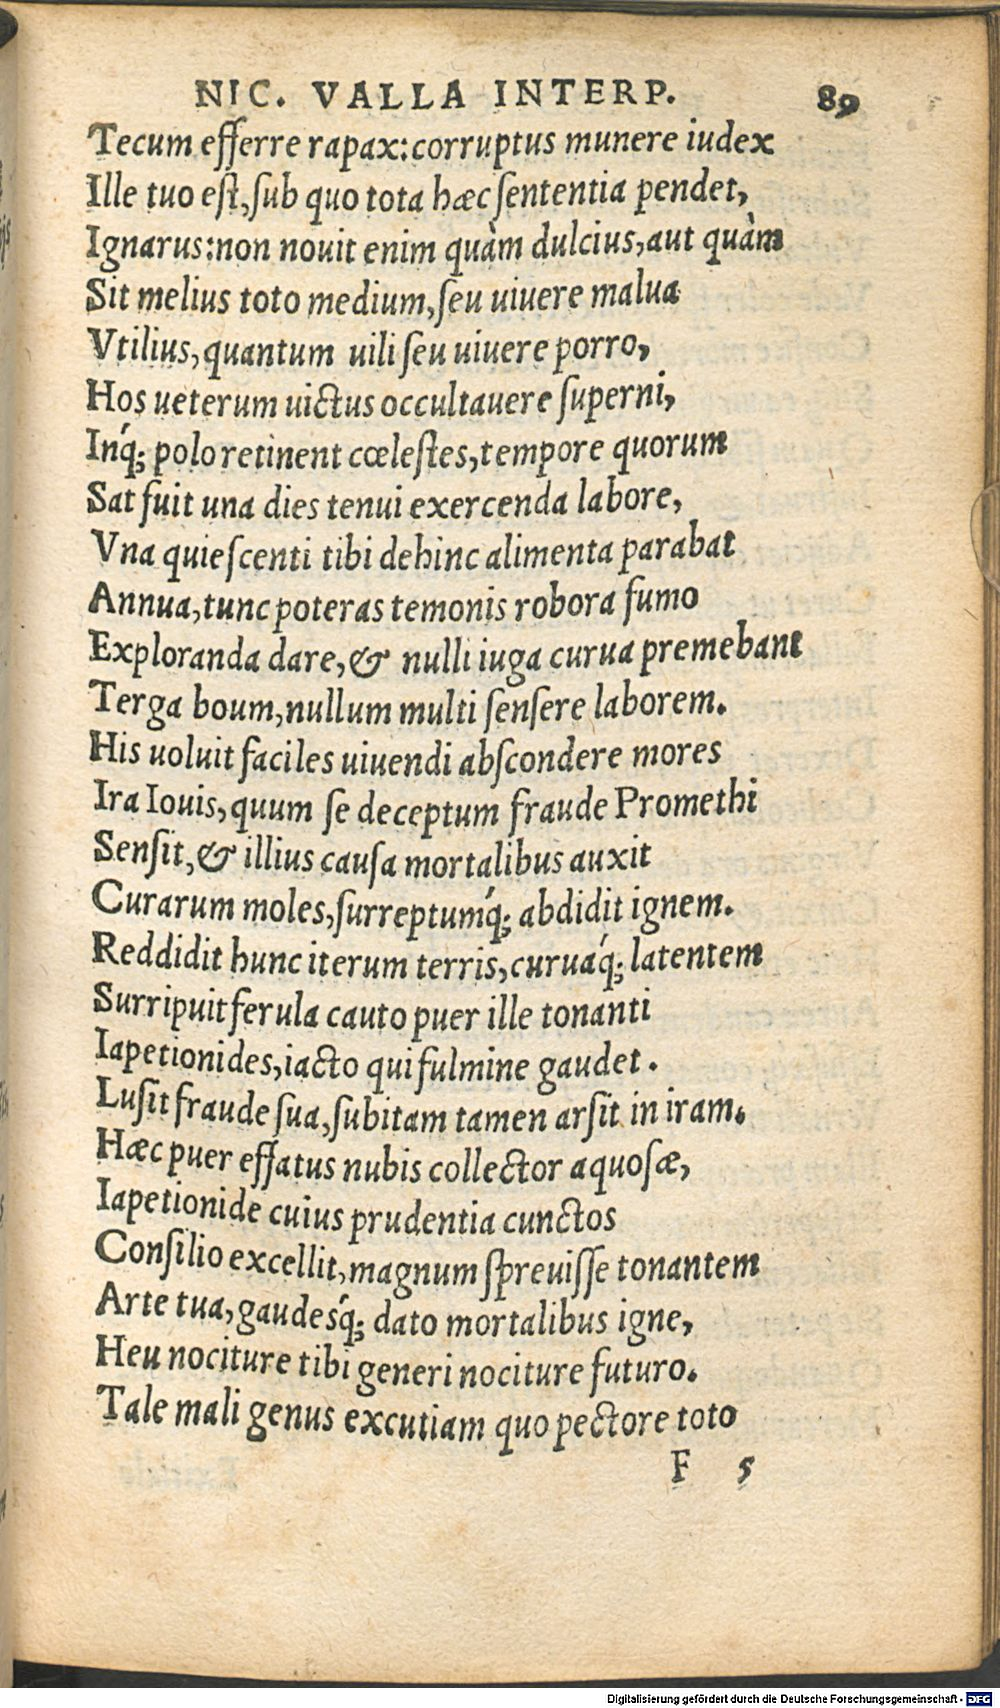 NIC. VALLA INTERP. 89
Tecum efferre rapax: corruptus munere iudex
Ille tuo eſt, ſub quo tota hæc ſententia pendet,
Ignarus: non nouit enim quàm dulcius, aut quàm
Sit melius toto medium, ſeu uiuere malua
Vtilius, quantum uili ſeu uiuere porro,
Hos ueterum uictus occultauere ſuperni,
Inq́; polo retinent cœleſtes, tempore quorum
Sat fuit una dies tenui exercenda labore,
Vna quieſcenti tibi dehinc alimenta parabat
Annua, tunc poteras temonis robora fumo
Exploranda dare, & nulli iuga curua premebant
Terga boum, nullum multi ſenſere laborem.
His uoluit faciles uiuendi abſcondere mores
Ira Iouis, quum ſe deceptum fraude Promethi
Senſit, & illius cauſa mortalibus auxit
Curarum moles, ſurreptumq́; abdidit ignem.
Reddidit hunc iterum terris, curuáq; latentem
Surripuit ferula cauto puer ille tonanti
Iapetionides, iacto qui fulmine gaudet.
Luſit fraude ſua, ſubitam tamen arſit in iram.
Hæc puer effatus nubis collector aquoſæ,
Iapetionide cuius prudentia cunctos
Conſilio excellit, magnum ſpreuiſſe tonantem
Arte tua, gaudesq́; dato mortalibus igne,
Heu nociture tibi generi nociture futuro.
Tale mali genus excutiam quo pectore toto
F 5
Digitalisierung gefördert durch die Deutsche Forschungsgemeinschaft - DFG